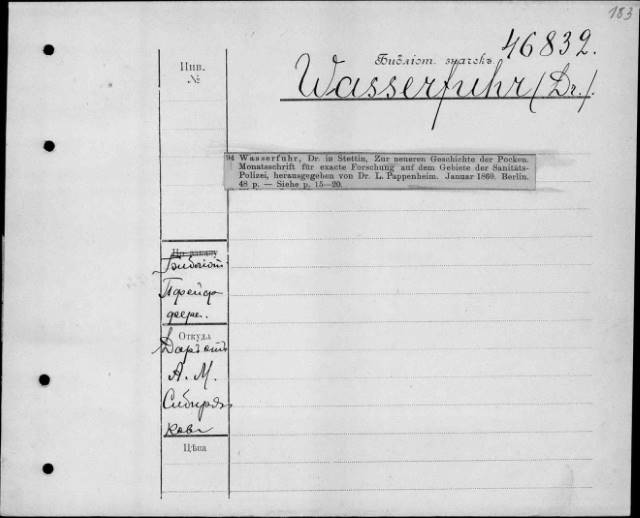 183
46832.
Библіот. значекъ.
Wasserfuhr (Dr.).
Инв.
№
94 Wasserfuhr, Dr. in Stettin, Zur neueren Geschichte der Pocken.
Monatsschrift für exacte Forschung auf dem Gebiete der Sanitäts-
Polizei, herausgegeben von Dr. L. Pappenheim. Januar 1860. Berlin.
48 p. — Siehe p. 15—20.
По заказу
Библіот
Пфейф
фера.
Откуда
Даръ отъ
А. М.
Сибиря
кова
Цѣна